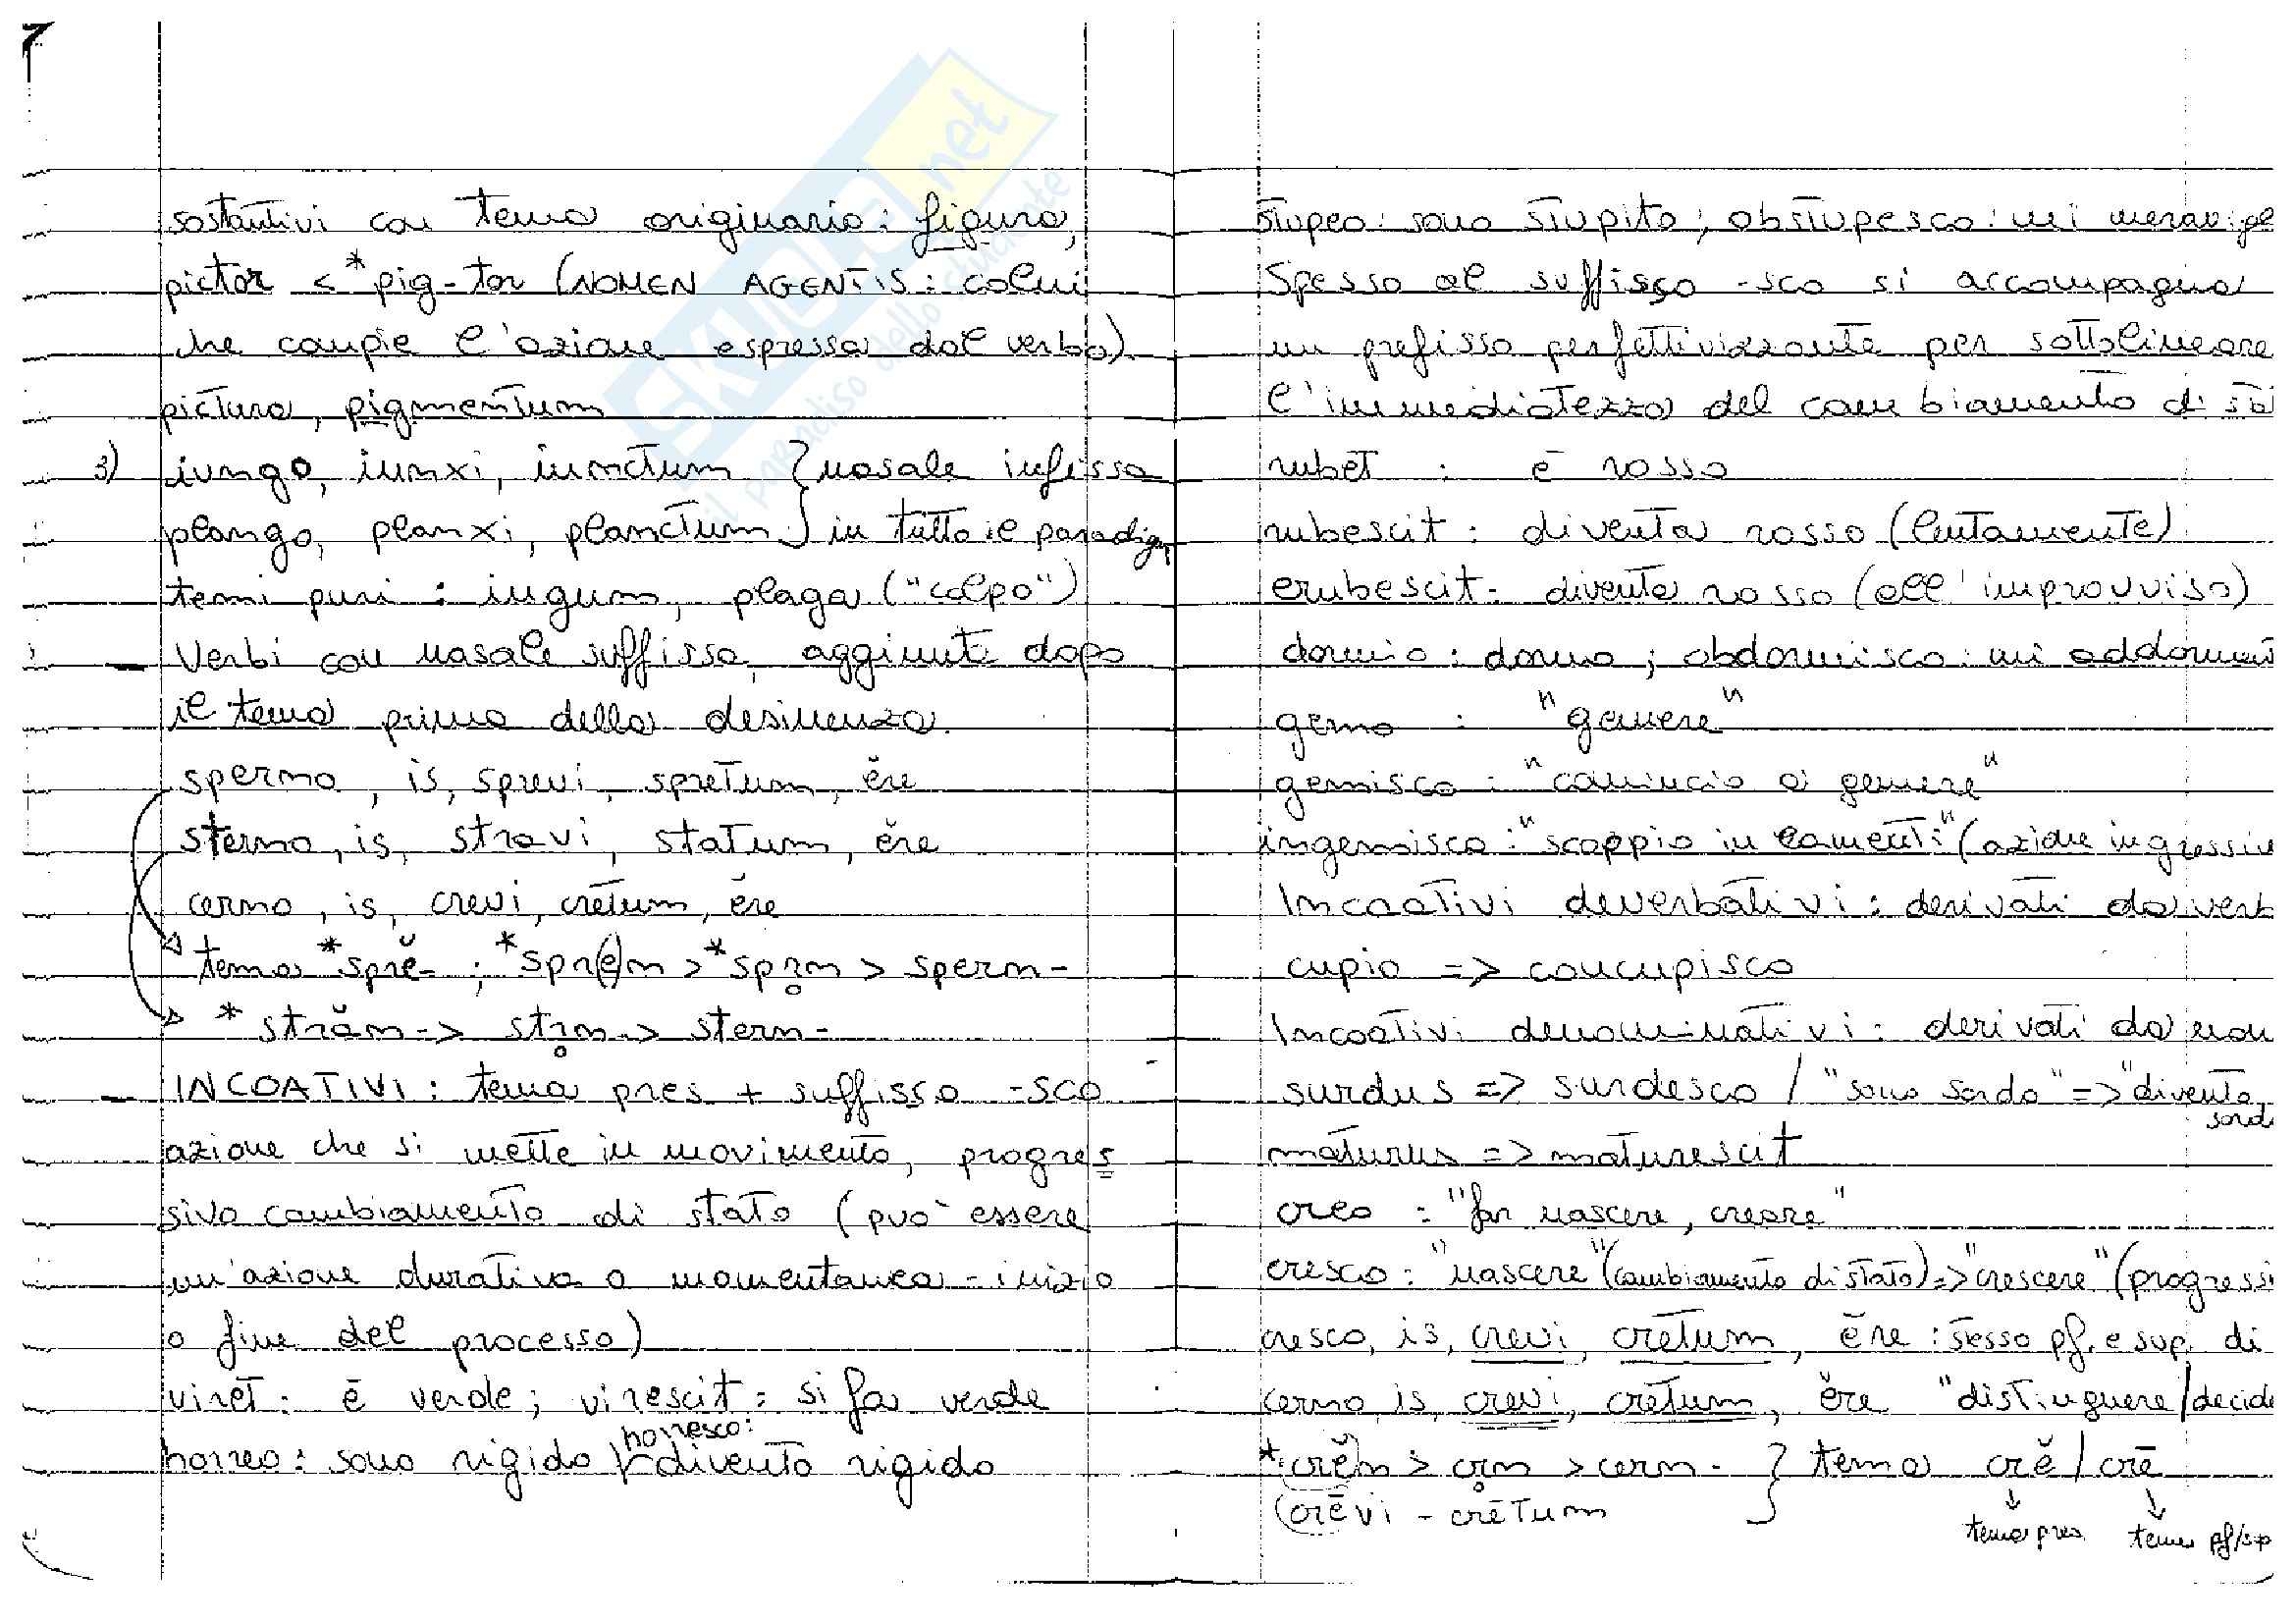 sostantivi con tema originario: figura,
pictor < *pig-tor (NOMEN AGENTIS: colui
che compie l'azione espressa dal verbo)
pictura, pigmentum
3) iungo, iunxi, iunctum } nasale infissa
plango, planxi, planctum } in tutto il paradigm
temi puri: iugum, plaga ("colpo")
- Verbi con nasale suffissa, aggiunta dopo
il tema prima della desinenza.
sperno, is, sprevi, spretum, ĕre
sterno, is, stravi, statum, ĕre
cerno, is, crevi, cretum, ĕre
tema *sprĕ- ; *spr(e)n > *spr̥n > spern-
* străn => str̥n => stern-
- INCOATIVI: tema pres + suffisso -sco
azione che si mette in movimento, progres
sivo cambiamento di stato (può essere
un'azione durativa o momentanea - inizio
o fine del processo)
viret: è verde; virescit: si fa verde
horreo: sono rigido / horresco: divento rigido
stupeo: sono stupito; obstupesco: mi meravigl
Spesso al suffisso -sco si accompagna
un prefisso perfettivizzante per sottolineare
l'immediatezza del cambiamento di st
rubet : è rosso
rubescit: diventa rosso (lentamente)
erubescit: diventa rosso (all'improvviso)
dormio: dormo; obdormisco: mi addorm
gemo : "gemere"
gemisco: "comincio a gemere"
ingemisco: "scoppio in lamenti" (azione ingressiv
Incoativi deverbativi: derivati da verb
cupio => concupisco
Incoativi denominativi: derivati da nom
surdus => surdesco / "sono sordo" => "divento
sord
maturus => maturescit
creo : "far nascere, creare"
cresco: "nascere" (cambiamento di stato) => "crescere" (progressi
cresco, is, crevi, cretum, ĕre: stesso pf. e sup. di
cerno, is, crevi, cretum, ĕre "distinguere/decide
*crĕn > cr̥n > cern- } tema crĕ/crē
(crēvi - crētum
tema pres tema pf/sup
SKUOLA.net
il paradiso dello studente